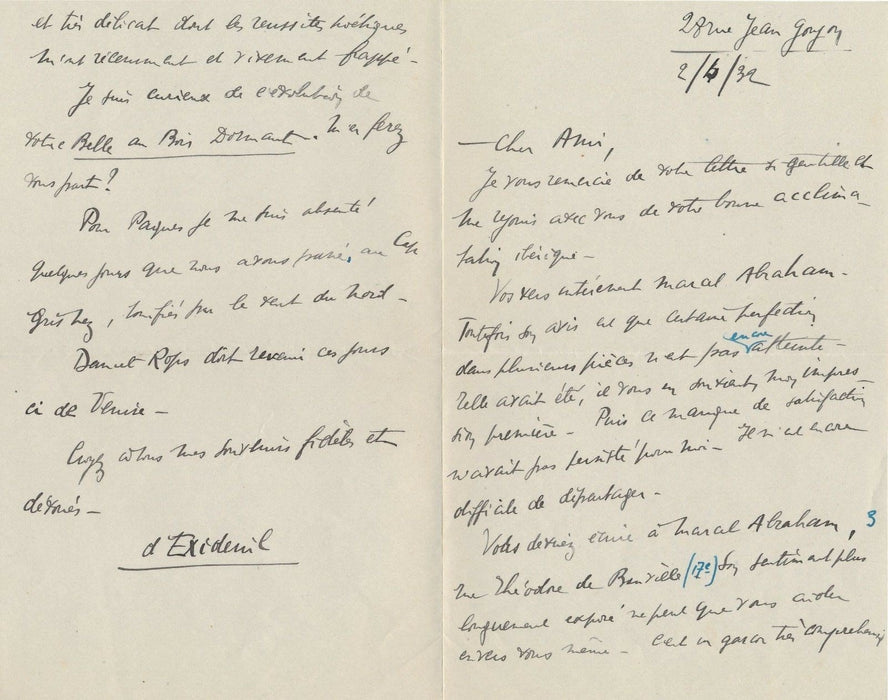 28 rue Jean Goujon
2/4/32
— Cher Ami,
Je vous remercie de votre lettre si gentille et
me réjouis avec vous de votre bonne acclima-
tation ibérique —
Vos vers intéressent Marcel Abraham —
Toutefois son avis est que certaine perfection
dans plusieurs pièces n'est pas encore atteinte —
Telle avait été, il vous en souvient, mon impres-
sion première — Puis ce manque de satisfaction
n'avait pas persisté pour moi — Je
difficile de départager —
Vous devriez écrire à Marcel Abraham, 3
rue Théodore de Banville (17e) Son sentiment plus
longuement exposé ne peut que vous aider
envers vous même — C'est un garçon très compréhensif
et très délicat dont les réussites poétiques
m'ont récemment et vivement frappé —
Je suis curieux de l'évolution de
votre Belle au Bois Dormant. M'en ferez
vous part ?
Pour Pâques je me suis absenté
quelques jours que nous avons passés, au Cap
Gris Nez, tonifiés par le vent du Nord —
Daniel Rops doit revenir ces jours
ci de Venise —
Croyez à tous mes souvenirs fidèles et
dévoués —
d'Exideuil